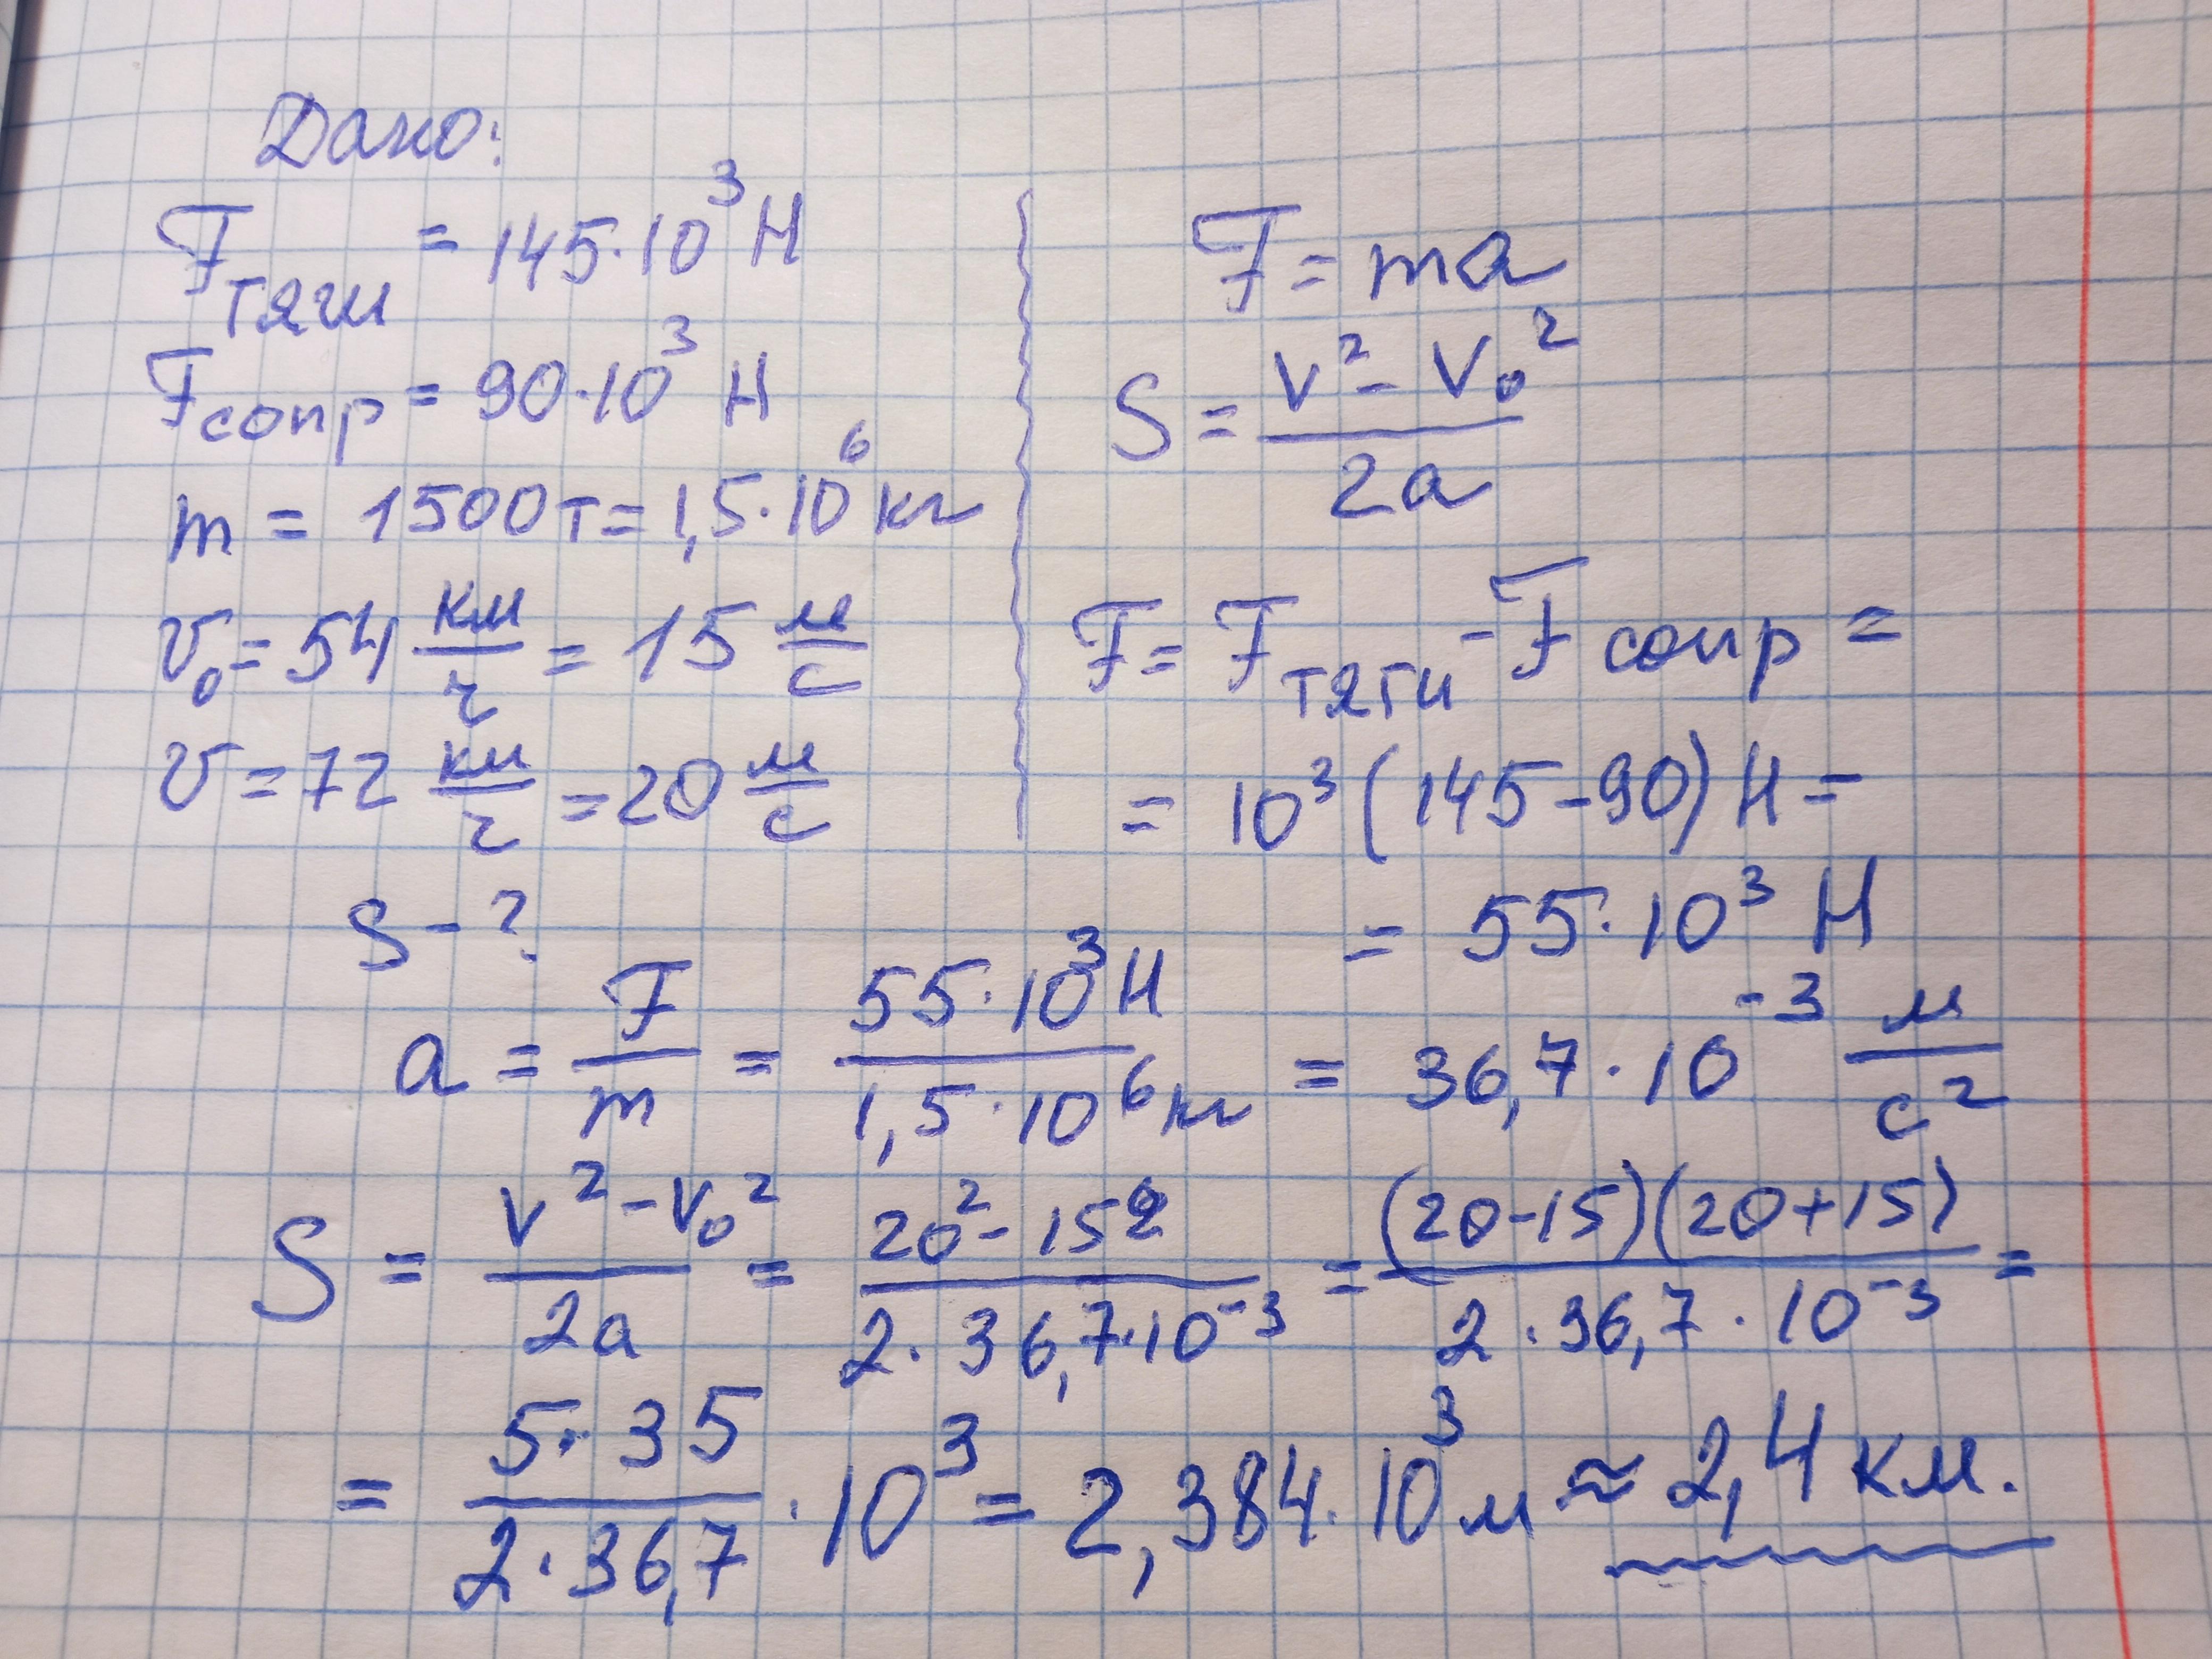 Дано:
F тяги = 145·10³ Н
F сопр = 90·10³ Н
m = 1500 т = 1,5·10⁶ кг
v₀ = 54 км/ч = 15 м/с
v = 72 км/ч = 20 м/с
S - ?
F = ma
S = (v² - v₀²)/2a
F = F тяги - F сопр =
= 10³ (145 - 90) Н =
= 55·10³ Н
a = F/m = 55·10³ Н / 1,5·10⁶ кг = 36,7·10⁻³ м/с²
S = (v² - v₀²)/2a = (20² - 15²)/(2·36,7·10⁻³) = (20-15)(20+15)/(2·36,7·10⁻³) =
= (5·35)/(2·36,7) · 10³ = 2,384·10³ м ≈ 2,4 км.